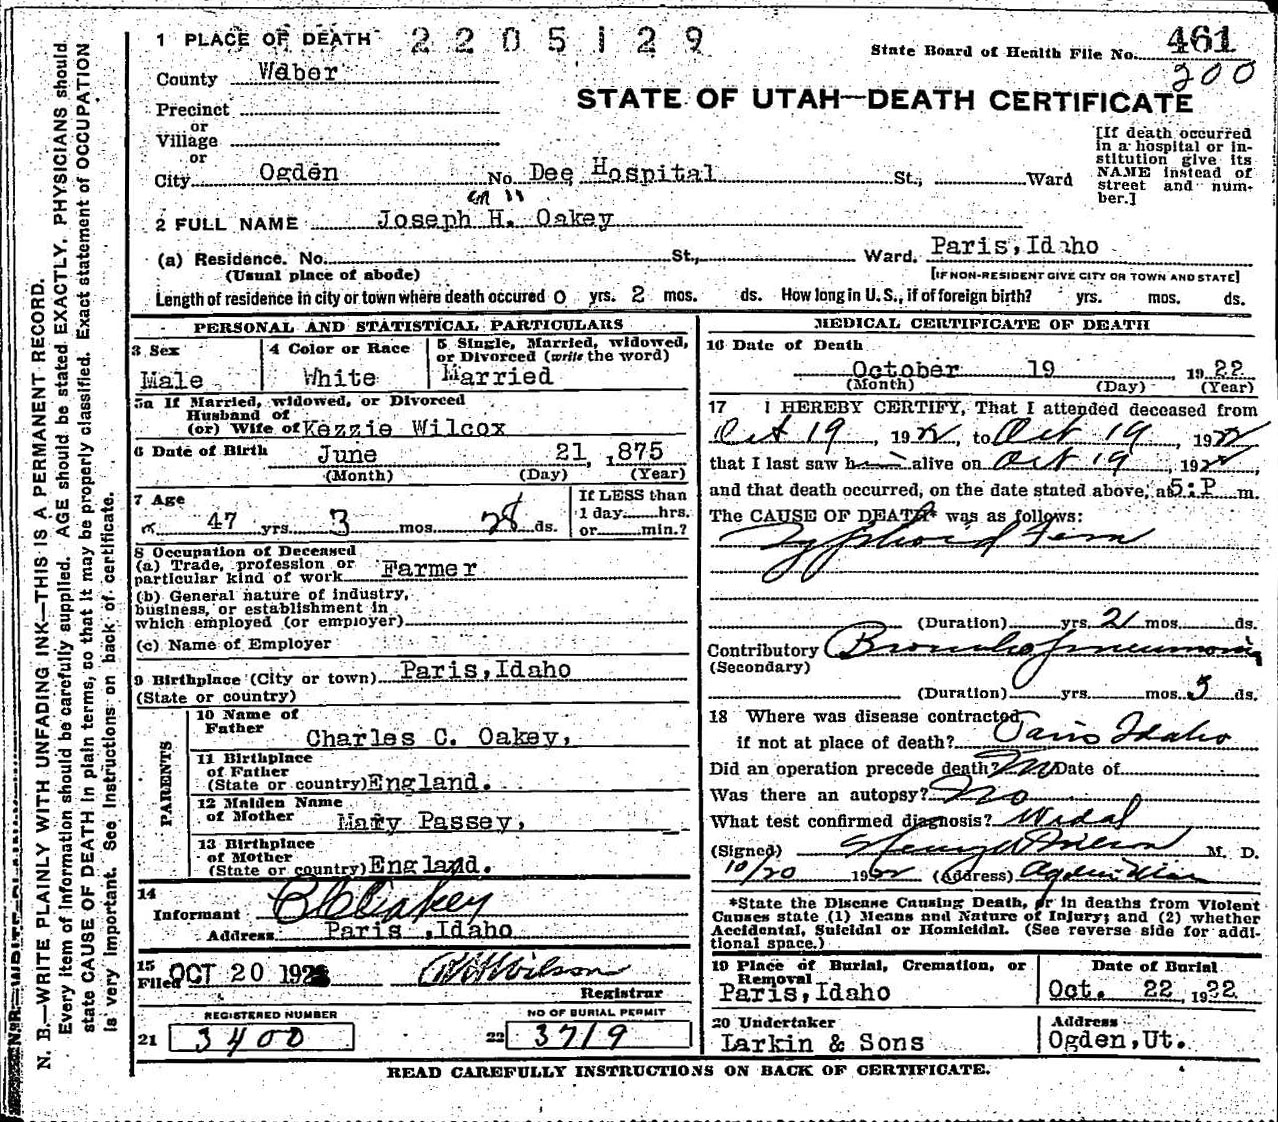 1 PLACE OF DEATH 2205129
State Board of Health File No. 461
200
County Weber
STATE OF UTAH—DEATH CERTIFICATE
Precinct
or
Village
or
City Ogden No. Dee Hospital St., Ward
[If death occurred in a hospital or institution give its NAME instead of street and number.]
2 FULL NAME Joseph H. Oakey
(a) Residence. No. St., Ward. Paris, Idaho
(Usual place of abode) [IF NON-RESIDENT GIVE CITY OR TOWN AND STATE]
Length of residence in city or town where death occured 0 yrs. 2 mos. ds. How long in U. S., if of foreign birth? yrs. mos. ds.
PERSONAL AND STATISTICAL PARTICULARS
3 Sex
Male
4 Color or Race
White
5 Single, Married, widowed,
or Divorced (write the word)
Married
5a If Married, widowed, or Divorced
Husband of
(or) Wife of Kezzie Wilcox
6 Date of Birth June 21, 1875
(Month) (Day) (Year)
7 Age
47 yrs. 3 mos. 28 ds.
If LESS than
1 day hrs.
or min.?
8 Occupation of Deceased
(a) Trade, profession or
particular kind of work Farmer
(b) General nature of industry,
business, or establishment in
which employed (or employer)
(c) Name of Employer
9 Birthplace (City or town) Paris, Idaho
(State or country)
PARENTS
10 Name of
Father Charles C. Oakey,
11 Birthplace
of Father
(State or country) England.
12 Maiden Name
of Mother Mary Passey,
13 Birthplace
of Mother
(State or country) England.
14
Informant C C Oakey
Address Paris, Idaho
15
Filed OCT 20 192 W Wilson
Registrar
REGISTERED NUMBER
21 3400
NO OF BURIAL PERMIT
22 3719
MEDICAL CERTIFICATE OF DEATH
16 Date of Death
October 19 1922
(Month) (Day) (Year)
17 I HEREBY CERTIFY, That I attended deceased from
Oct 19, 1922, to Oct 19, 1922
that I last saw h alive on Oct 19, 1922,
and that death occurred, on the date stated above, at 5:P m.
The CAUSE OF DEATH* was as follows:
Typhoid Fever
(Duration) yrs. 21 mos. ds.
Contributory Broncho pneumonia
(Secondary)
(Duration) yrs. mos. 3 ds.
18 Where was disease contracted
if not at place of death? Paris Idaho
Did an operation precede death? No Date of
Was there an autopsy? No
What test confirmed diagnosis? Widal
(Signed) M. D.
10/20 1922 (Address) Ogden Utah
*State the Disease Causing Death, or in deaths from Violent
Causes state (1) Means and Nature of Injury; and (2) whether
Accidental, Suicidal or Homicidal. (See reverse side for addi-
tional space.)
19 Place of Burial, Cremation, or
Removal
Paris, Idaho
Date of Burial
Oct. 22, 1922
20 Undertaker
Larkin & Sons
Address
Ogden, Ut.
READ CAREFULLY INSTRUCTIONS ON BACK OF CERTIFICATE.
N. B.—WRITE PLAINLY WITH UNFADING INK—THIS IS A PERMANENT RECORD.
Every item of information should be carefully supplied. AGE should be stated EXACTLY. PHYSICIANS should
state CAUSE OF DEATH in plain terms, so that it may be properly classified. Exact statement of OCCUPATION
is very important. See instructions on back of certificate.